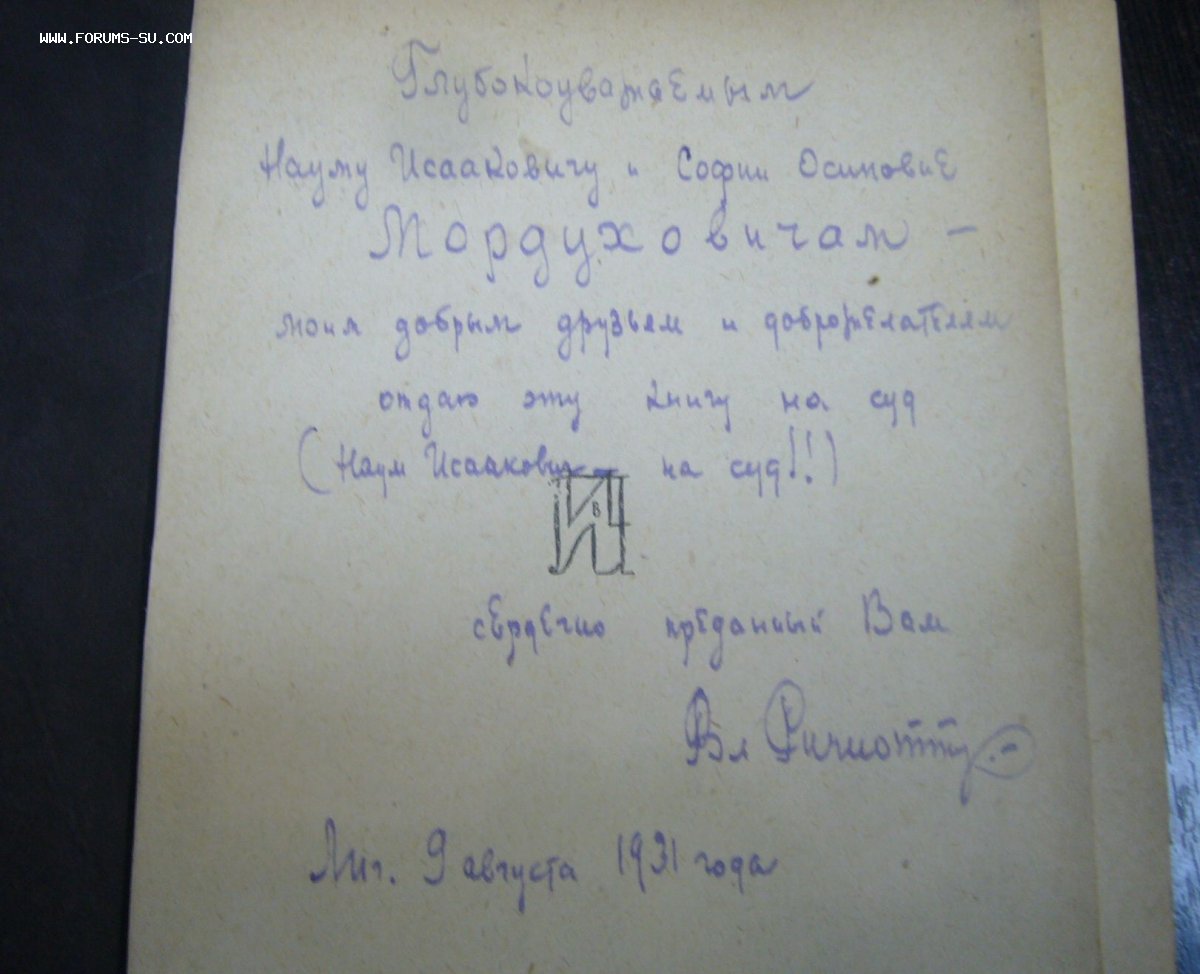 www.forums-su.com
Глубокоуважаемым
Науму Исааковичу и Софии Осиповне
Мордуховичам –
моим добрым друзьям и доброжелателям
отдаю эту книгу на суд
(Наум Исаакович – на суд!!)
сердечно преданный Вам
Вл Ричиотти
Лнг. 9 августа 1931 года